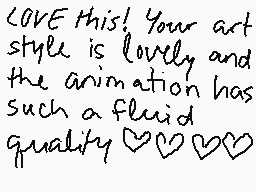 LOVE this! Your art
style is lovely and
the animation has
such a fluid
quality ♡♡♡♡